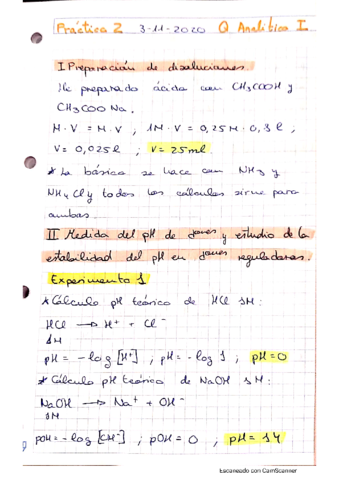 Práctica 2 3-11-2020 Q Analítica I
I Preparación de disoluciones
He preparado ácida con CH₃COOH y
CH₃COO Na.
M · V = M · V ; 1M · V = 0,25M · 0,1 l ;
V = 0,025 l ; V = 25 ml.
* La básica se hace con NH₃ y
NH₄Cl y todos los cálculos sirve para
ambas.
II Medida del pH de dones y estudio de la
estabilidad del pH en dones reguladores.
Experimento 1
* Cálculo pH teórico de HCl 1M:
HCl → H⁺ + Cl⁻
1M
pH = -log [H⁺] ; pH = -log 1 ; pH = 0
* Cálculo pH teórico de NaOH 1M:
NaOH → Na⁺ + OH⁻
1M
pOH = -log [OH⁻] ; pOH = 0 ; pH = 14
Escaneado con CamScanner